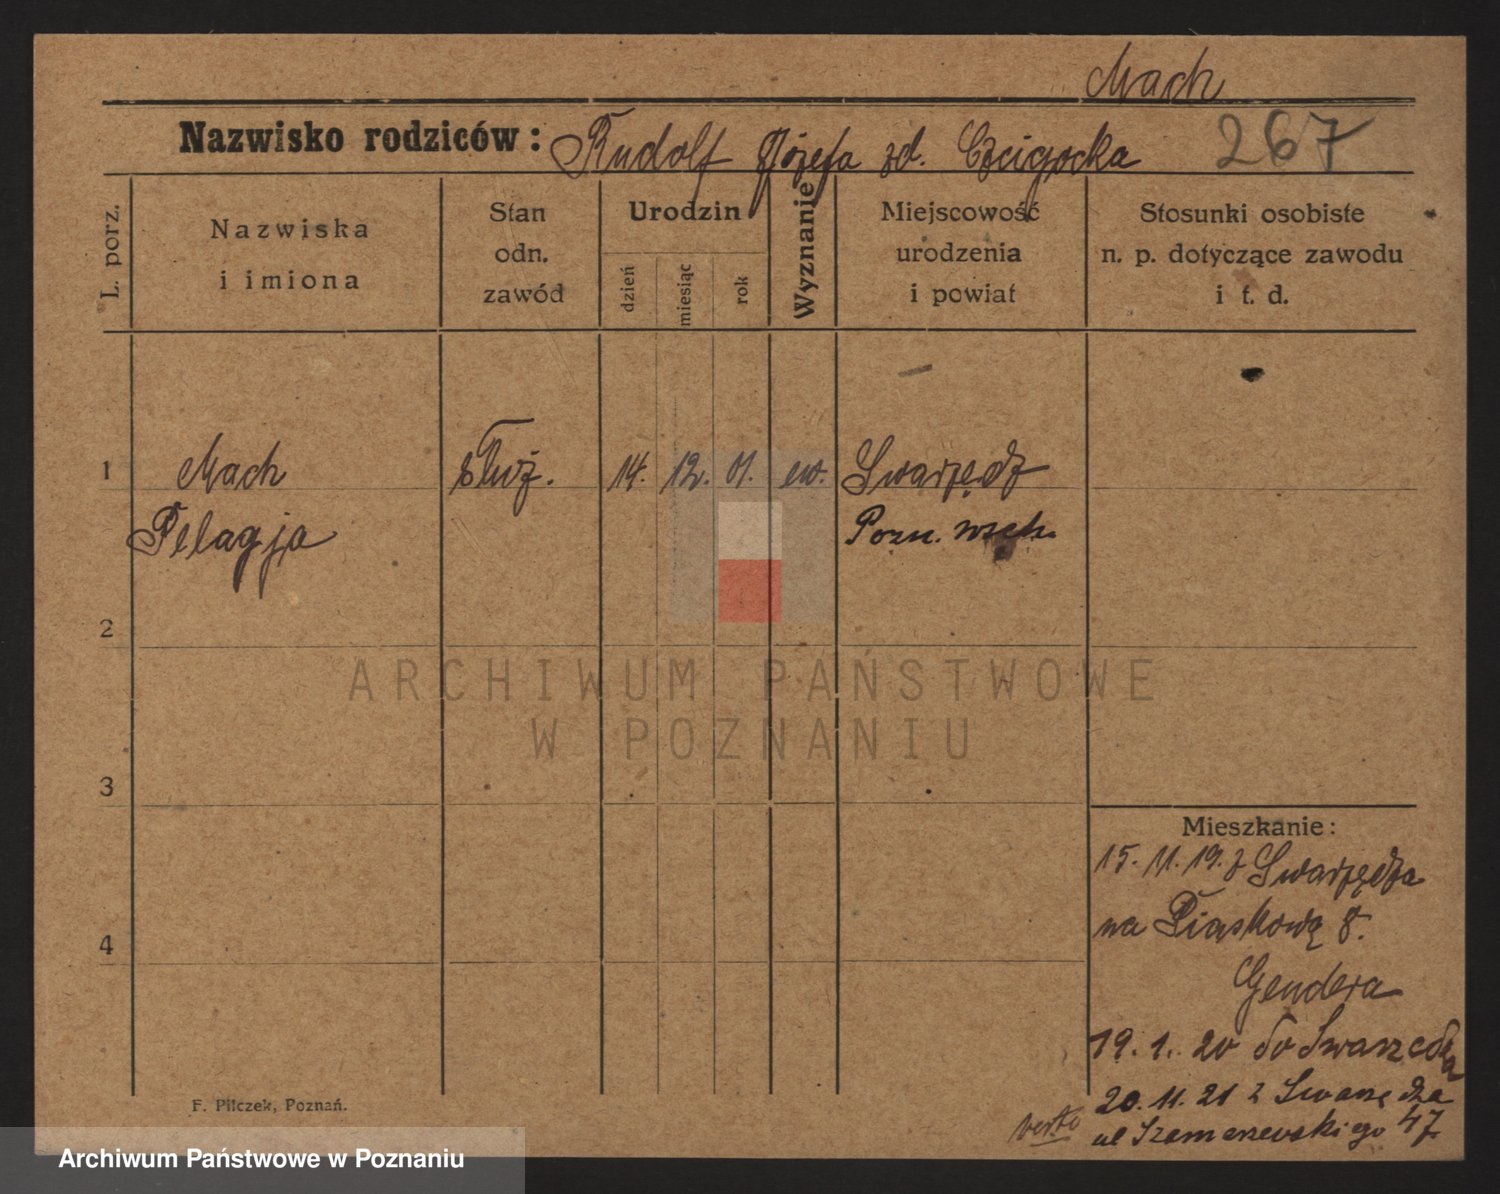 Mach
Nazwisko rodziców: Rudolf Józefa zd. Czcigocka 267
L. porz.
Nazwiska
i imiona
Stan
odn.
zawód
Urodzin
dzień
miesiąc
rok
Wyznanie
Miejscowość
urodzenia
i powiat
Stosunki osobiste
n. p. dotyczące zawodu
i t. d.
1 Mach służ. 14. 12. 01. ew. Swarzędz
Pelagja Pozn. wsch.
2
ARCHIWUM PAŃSTWOWE
W POZNANIU
3
Mieszkanie:
15. 11. 19. z Swarzędza
na Piaskową 8.
4
Gendera
19. 1. 20 do Swarzędza
20. 11. 21 z Swarzędza
ul Szamarzewskiego 47
verte
F. Pilczek, Poznań.
Archiwum Państwowe w Poznaniu